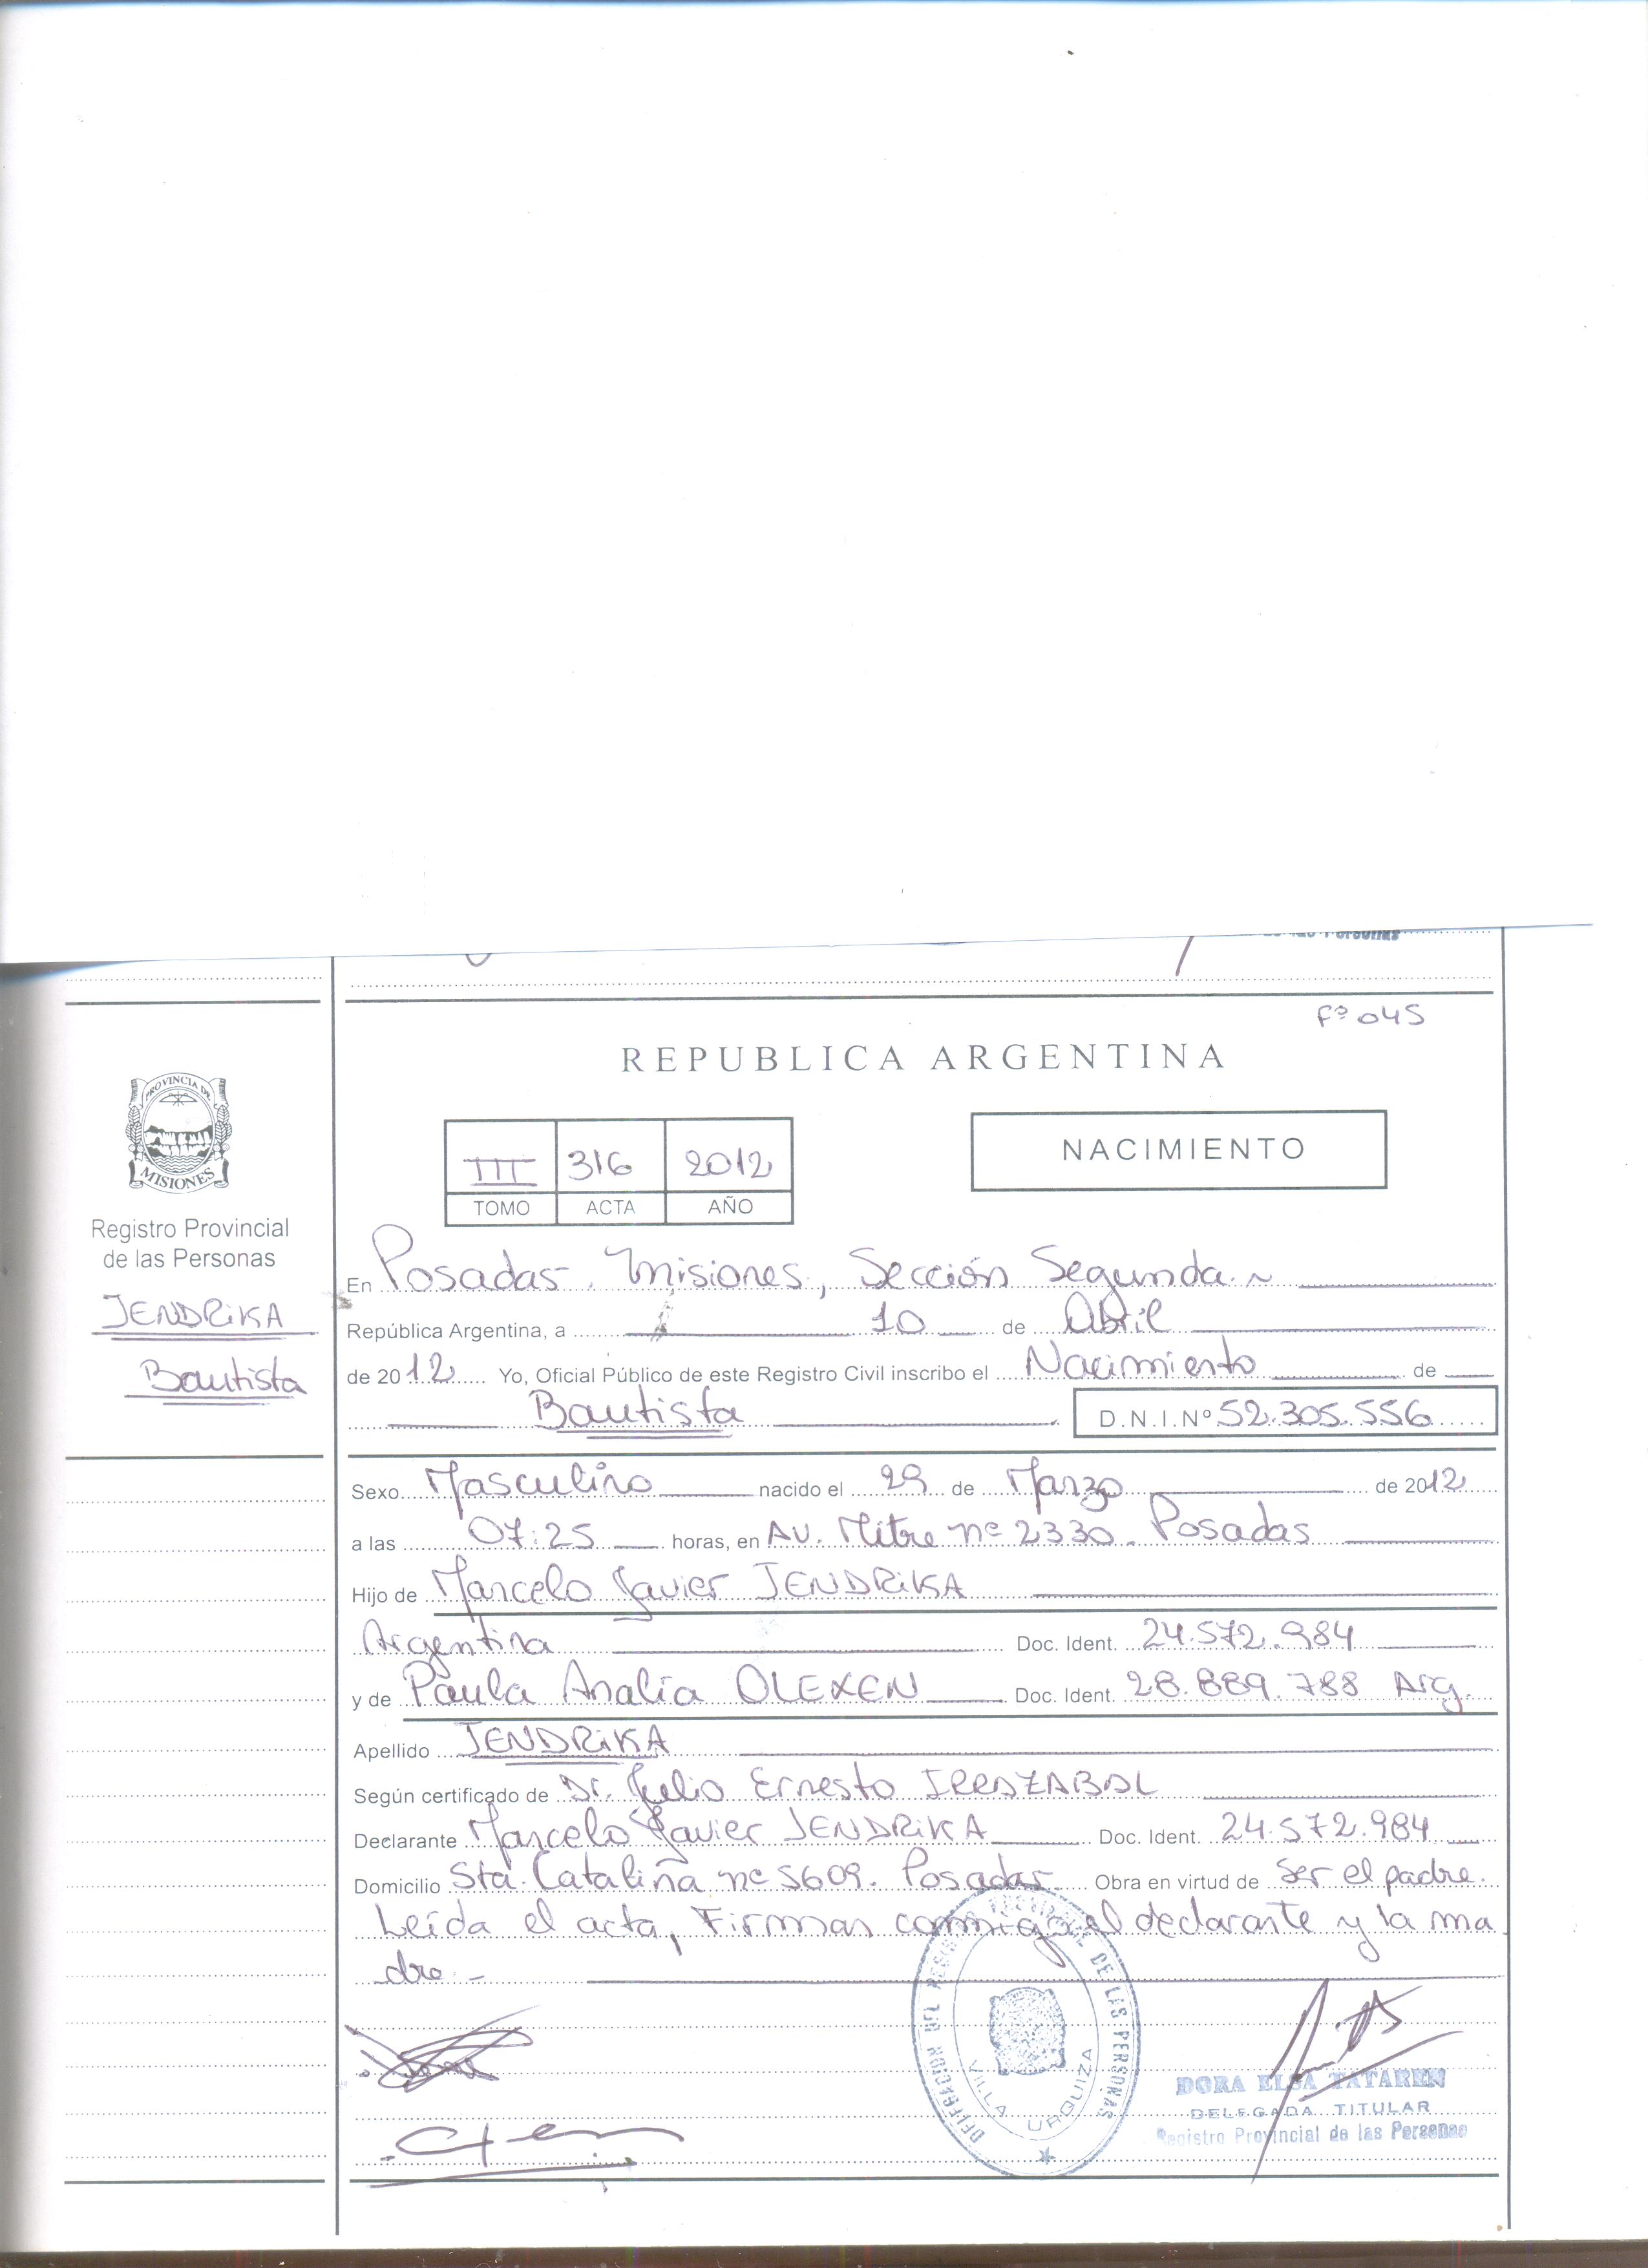 de las Personas
Fº 045
REPUBLICA ARGENTINA
PROVINCIA DE
MISIONES
NACIMIENTO
III 316 2012
TOMO ACTA AÑO
Registro Provincial
de las Personas
JENDRiKA
Bautista
En Posadas, Misiones, Sección Segunda.~
República Argentina, a 10 de Abril
de 2012 Yo, Oficial Público de este Registro Civil inscribo el Nacimiento de
Bautista D.N.I.Nº 52.305.556
Sexo Masculino nacido el 29 de Marzo de 2012
a las 07:25 horas, en Av. Mitre nº 2330. Posadas
Hijo de Marcelo Javier JENDRiKA
Argentina Doc. Ident. 24.572.984
y de Paula Analía OLEXEN Doc. Ident. 28.889.788 Arg.
Apellido JENDRiKA
Según certificado de Dr. Julio Ernesto IRRAZABAL
Declarante Marcelo Javier JENDRiKA Doc. Ident. 24.572.984
Domicilio Sta. Cataliña nº 5609. Posadas Obra en virtud de Ser el padre.
Leída el acta, Firman conmigo el declarante y la ma
dre.-
DELEGACION DEL REGISTRO PROVINCIAL DE LAS PERSONAS
VILLA URQUIZA
DORA ELSA TATAREN
DELEGADA TITULAR
Registro Provincial de las Personas